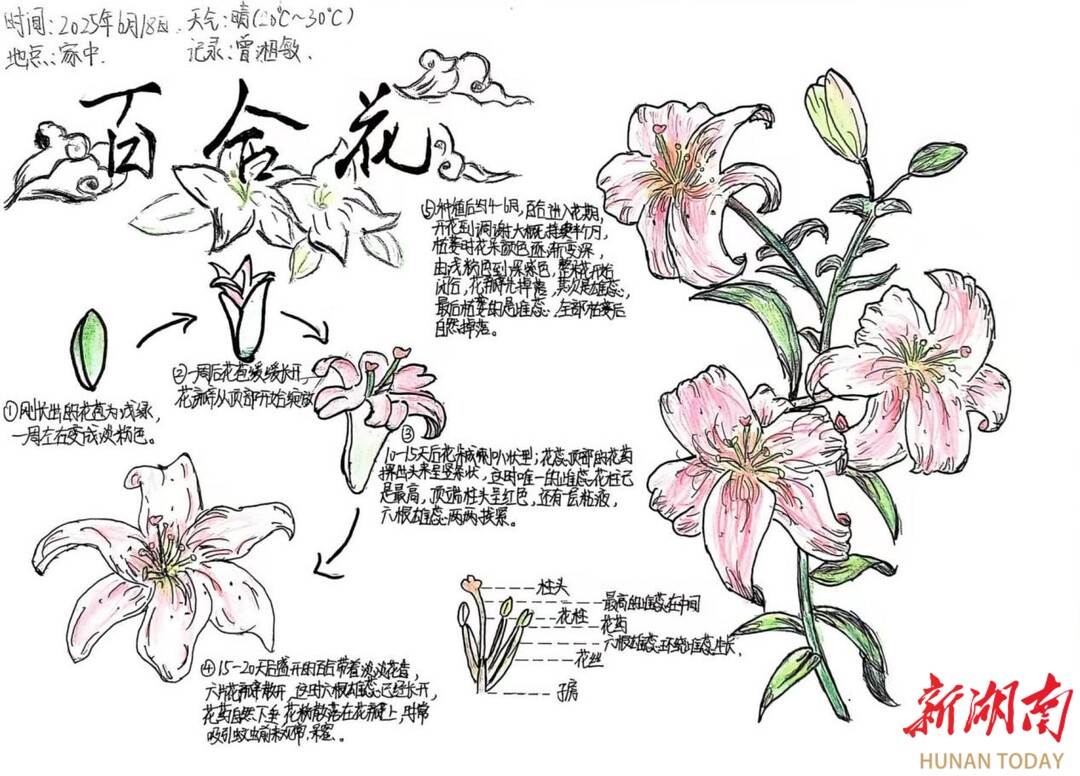 时间:2025年6月18日 天气:晴(20℃~30℃)
地点:家中. 记录:曾湘敏.
百合花
①刚长出的花苞为浅绿,
一周左右变成淡粉色。
②一周后花苞缓缓长开,
花瓣从顶部开始绽放
③
10-15天后花瓣成喇叭状型;花蕊顶部的花药
探出头来呈竖条状,这时唯一的雌蕊花柱已
是最高,顶端柱头呈红色,还有层粘液,
六根雄蕊两两挨紧。
④15-20天后盛开的百合带着淡淡花香,
六片花瓣散开,这时六根雄蕊已经长开,
花药自然下垂 花粉散落在花瓣上,时常
吸引蚊虫前来观赏,采蜜。
⑤种植后约个月,百合进入花期,
开花到凋谢大概持续半个月,
枯萎时花朵颜色逐渐变深,
由浅粉色到深紫色,整朵花开始
闭合,花瓣先掉落,其次是雄蕊,
最后枯萎的是雌蕊,全部枯萎后
自然掉落。
柱头
最高的雌蕊在中间
花柱
花药
六根雄蕊环绕雌蕊生长.
花丝
子房
新湖南
HUNAN TODAY